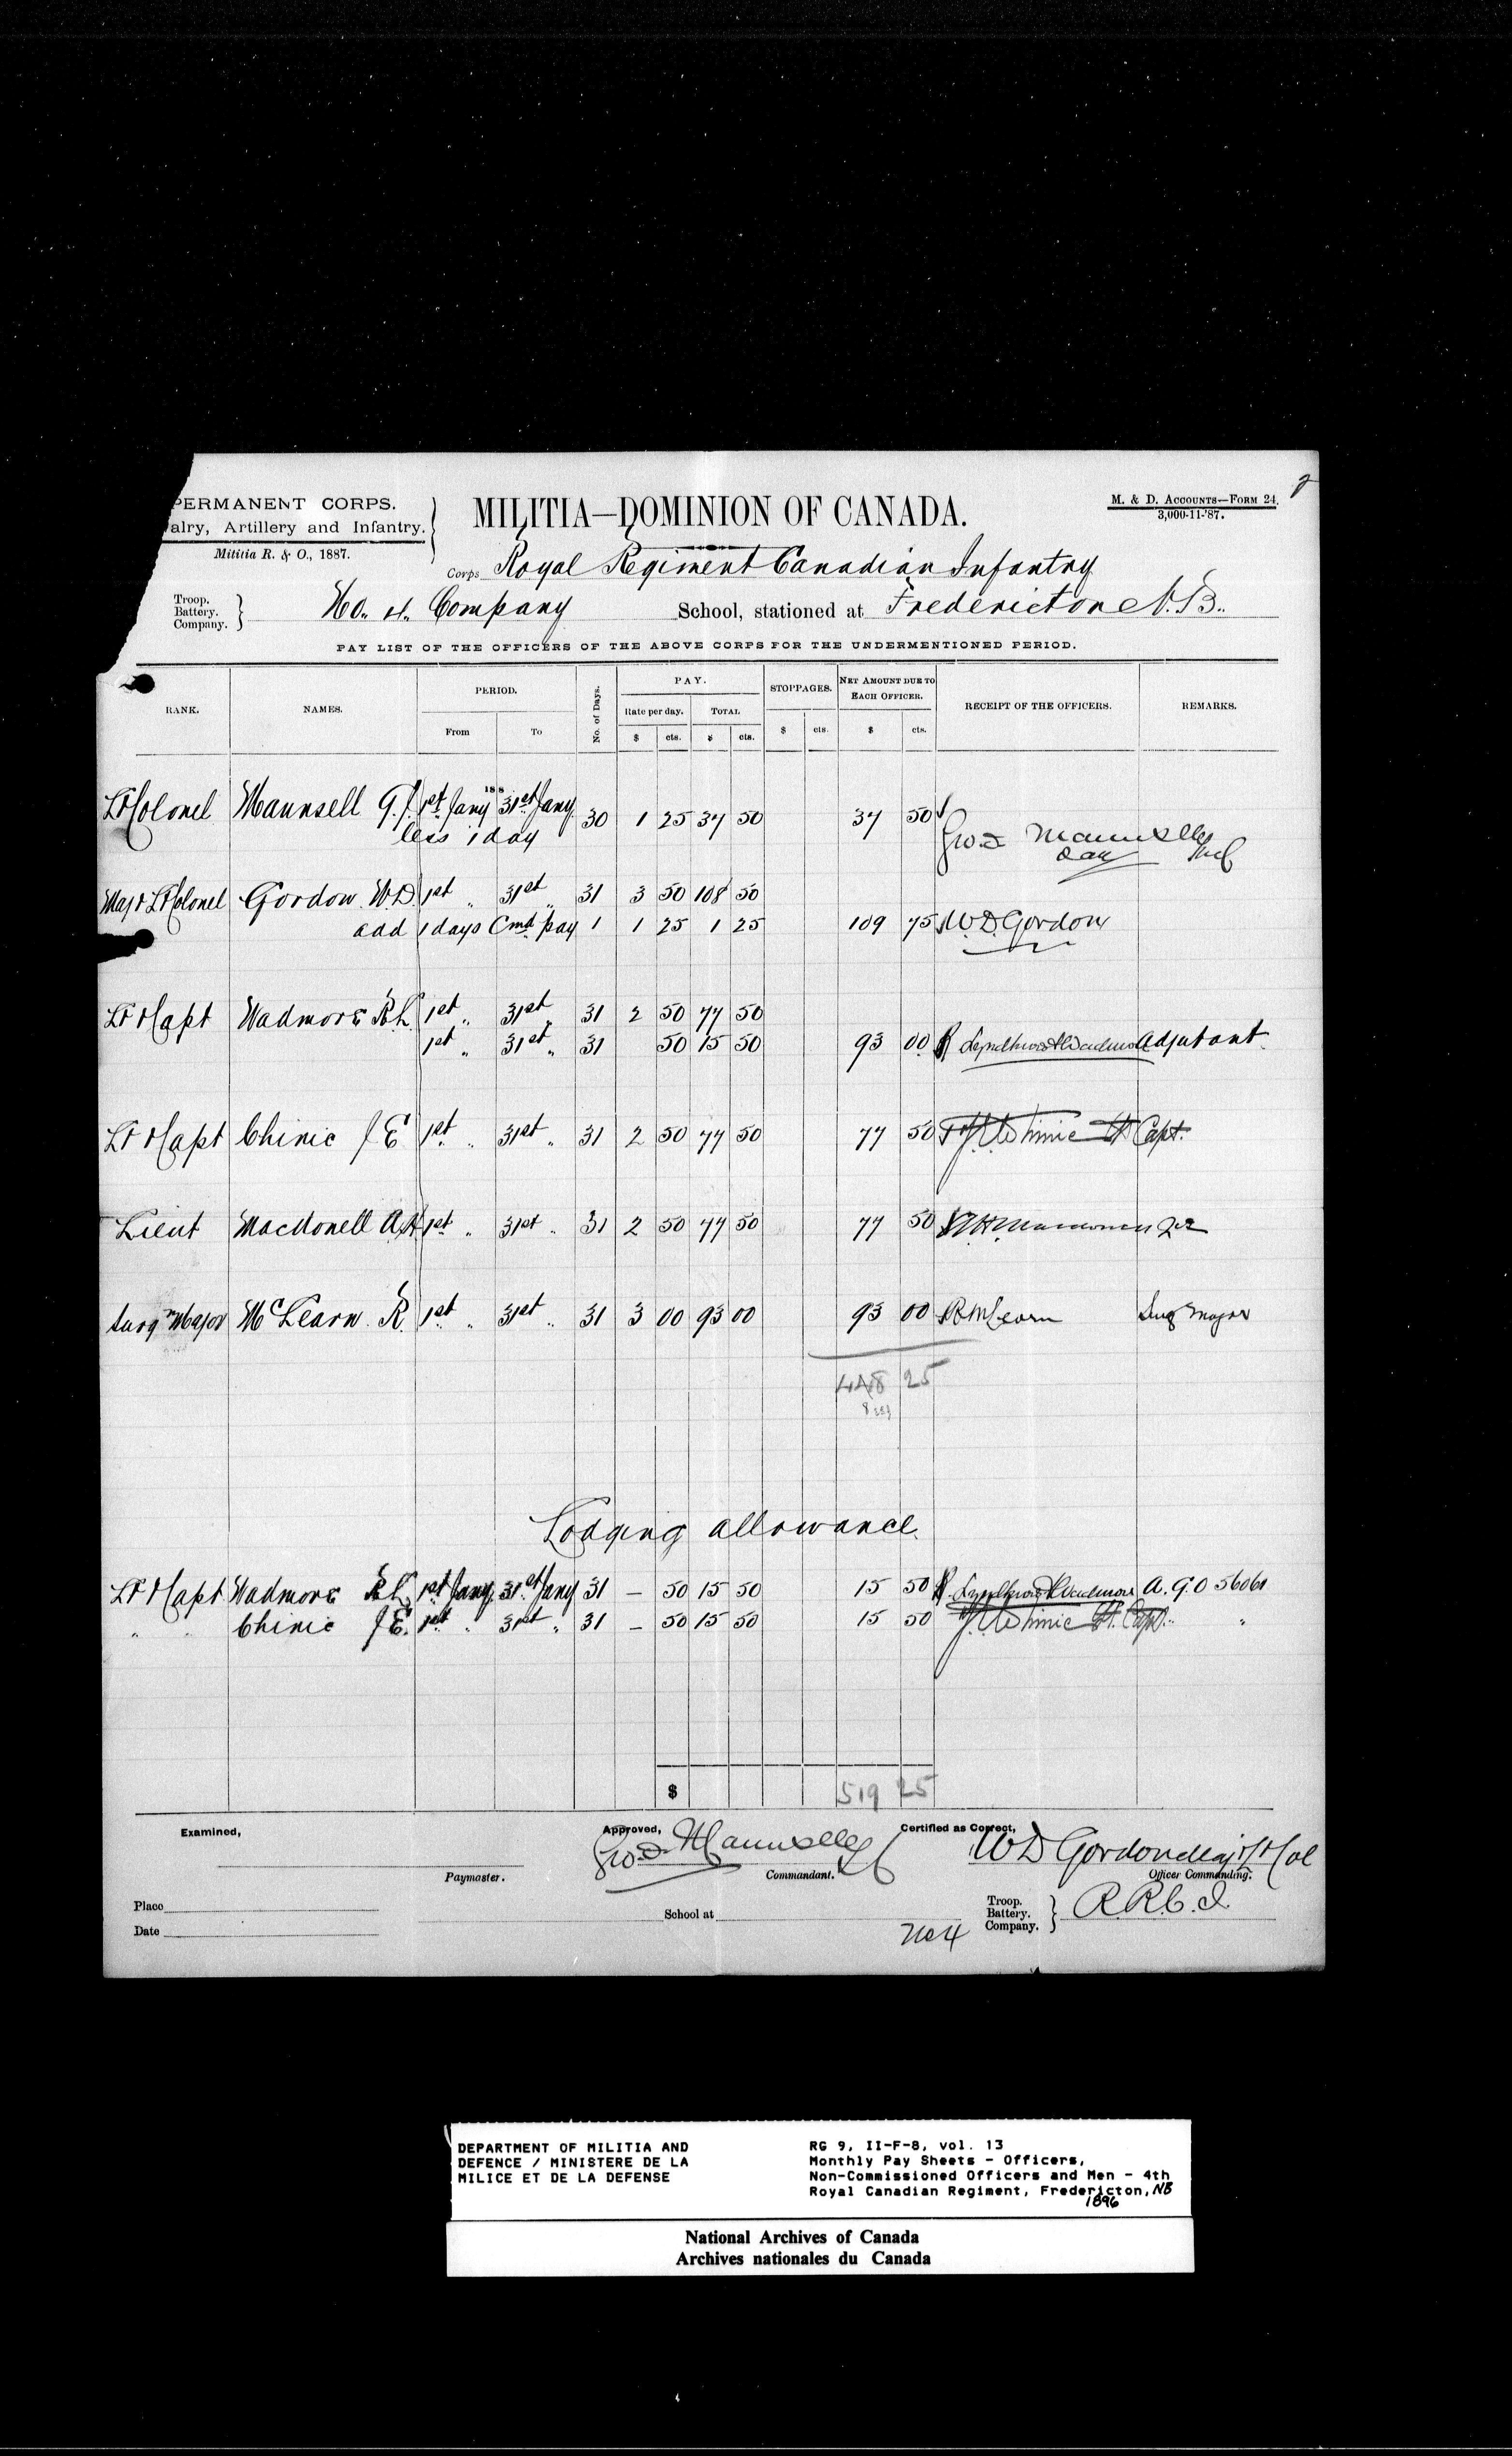 PERMANENT CORPS.
alry, Artillery and Infantry.
Militia R. & O., 1887.
MILITIA—DOMINION OF CANADA.
M. & D. Accounts—Form 24.
3,000-11-'87.
Corps Royal Regiment Canadian Infantry
Troop.
Battery.
Company.
No. 4. Company School, stationed at Fredericton N.B.
PAY LIST OF THE OFFICERS OF THE ABOVE CORPS FOR THE UNDERMENTIONED PERIOD.
RANK. NAMES. PERIOD. No. of Days. PAY. STOPPAGES. NET AMOUNT DUE TO EACH OFFICER. RECEIPT OF THE OFFICERS. REMARKS.
From To Rate per day. TOTAL
$ cts. $ cts. $ cts. $ cts.
188
Lt Colonel Maunsell G.J. 1st Jany 31st Jany 30 1 25 37 50 37 50 Geo. J. Maunsell
less 1 day
Maj & Lt Colonel Gordon W.D. 1st " 31st " 31 3 50 108 50
add 1 days Cmd pay 1 1 25 1 25 109 75 W.D. Gordon
Lt & Capt Wadmore R.L. 1st " 31st " 31 2 50 77 50
1st " 31st " 31 50 15 50 93 00 R Lyndhurst Wadmore Adjutant
Lt & Capt Chinic J E. 1st " 31st " 31 2 50 77 50 77 50 Chinic Lt Capt.
Lieut Macdonell A.H. 1st " 31st " 31 2 50 77 50 77 50 A.H. Macdonell
Surg Major McLearn R. 1st " 31st " 31 3 00 93 00 93 00 R McLearn Surg Major
25
Lodging allowance.
Lt & Capt Wadmore R.L. 1st Jany 31st Jany 31 — 50 15 50 15 50 R. Lyndhurst Wadmore A.G.O 56061
" " Chinic J E. 1st " 31st " 31 — 50 15 50 15 50 Chinic Lt. Capt. "
$ 519 25
Examined,
Paymaster.
Approved,
Geo. J. Maunsell
Commandant.
Certified as Correct,
W D Gordon Maj & Lt Col
Officer Commanding.
Place
Date
School at
No 4
Troop.
Battery.
Company.
R.R.C.I.
DEPARTMENT OF MILITIA AND
DEFENCE / MINISTERE DE LA
MILICE ET DE LA DEFENSE
RG 9, II-F-8, vol. 13
Monthly Pay Sheets - Officers,
Non-Commissioned Officers and Men - 4th
Royal Canadian Regiment, Fredericton, NB
1896
National Archives of Canada
Archives nationales du Canada